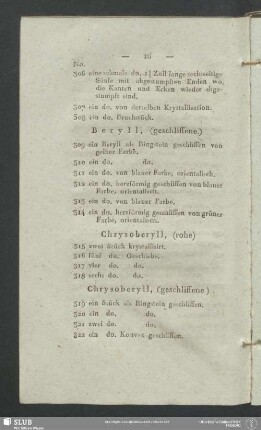 — 20 —
No.
306 eine schmale do. 2½ Zoll lange sechsseitige
Säule mit abgestumpften Enden wo,
die Kanten und Ecken wieder abge-
stumpft sind.
307 ein do. von derselben Krystallisation.
308 ein do. Bruchstück.
Beryll, (geschliffene.)
309 ein Beryll als Ringstein geschliffen von
gelber Farbe.
310 ein do. do.
311 ein do. von blauer Farbe, orientalisch.
312 ein do. herzförmig geschliffen von blauer
Farbe, orientalisch.
313 ein do. von blauer Farbe.
314 ein do. herzförmig geschliffen von grüner
Farbe, orientalisch.
Chrysoberyll, (rohe)
315 zwei Stück krystallisirt.
316 fünf do. Geschiebe.
317 vier do. do.
318 sechs do. do.
Chrysoberyll, (geschliffene)
319 ein Stück als Ringstein geschliffen.
320 ein do. do.
321 zwei do. do.
322 ein do. Konvex geschliffen.
SLUB